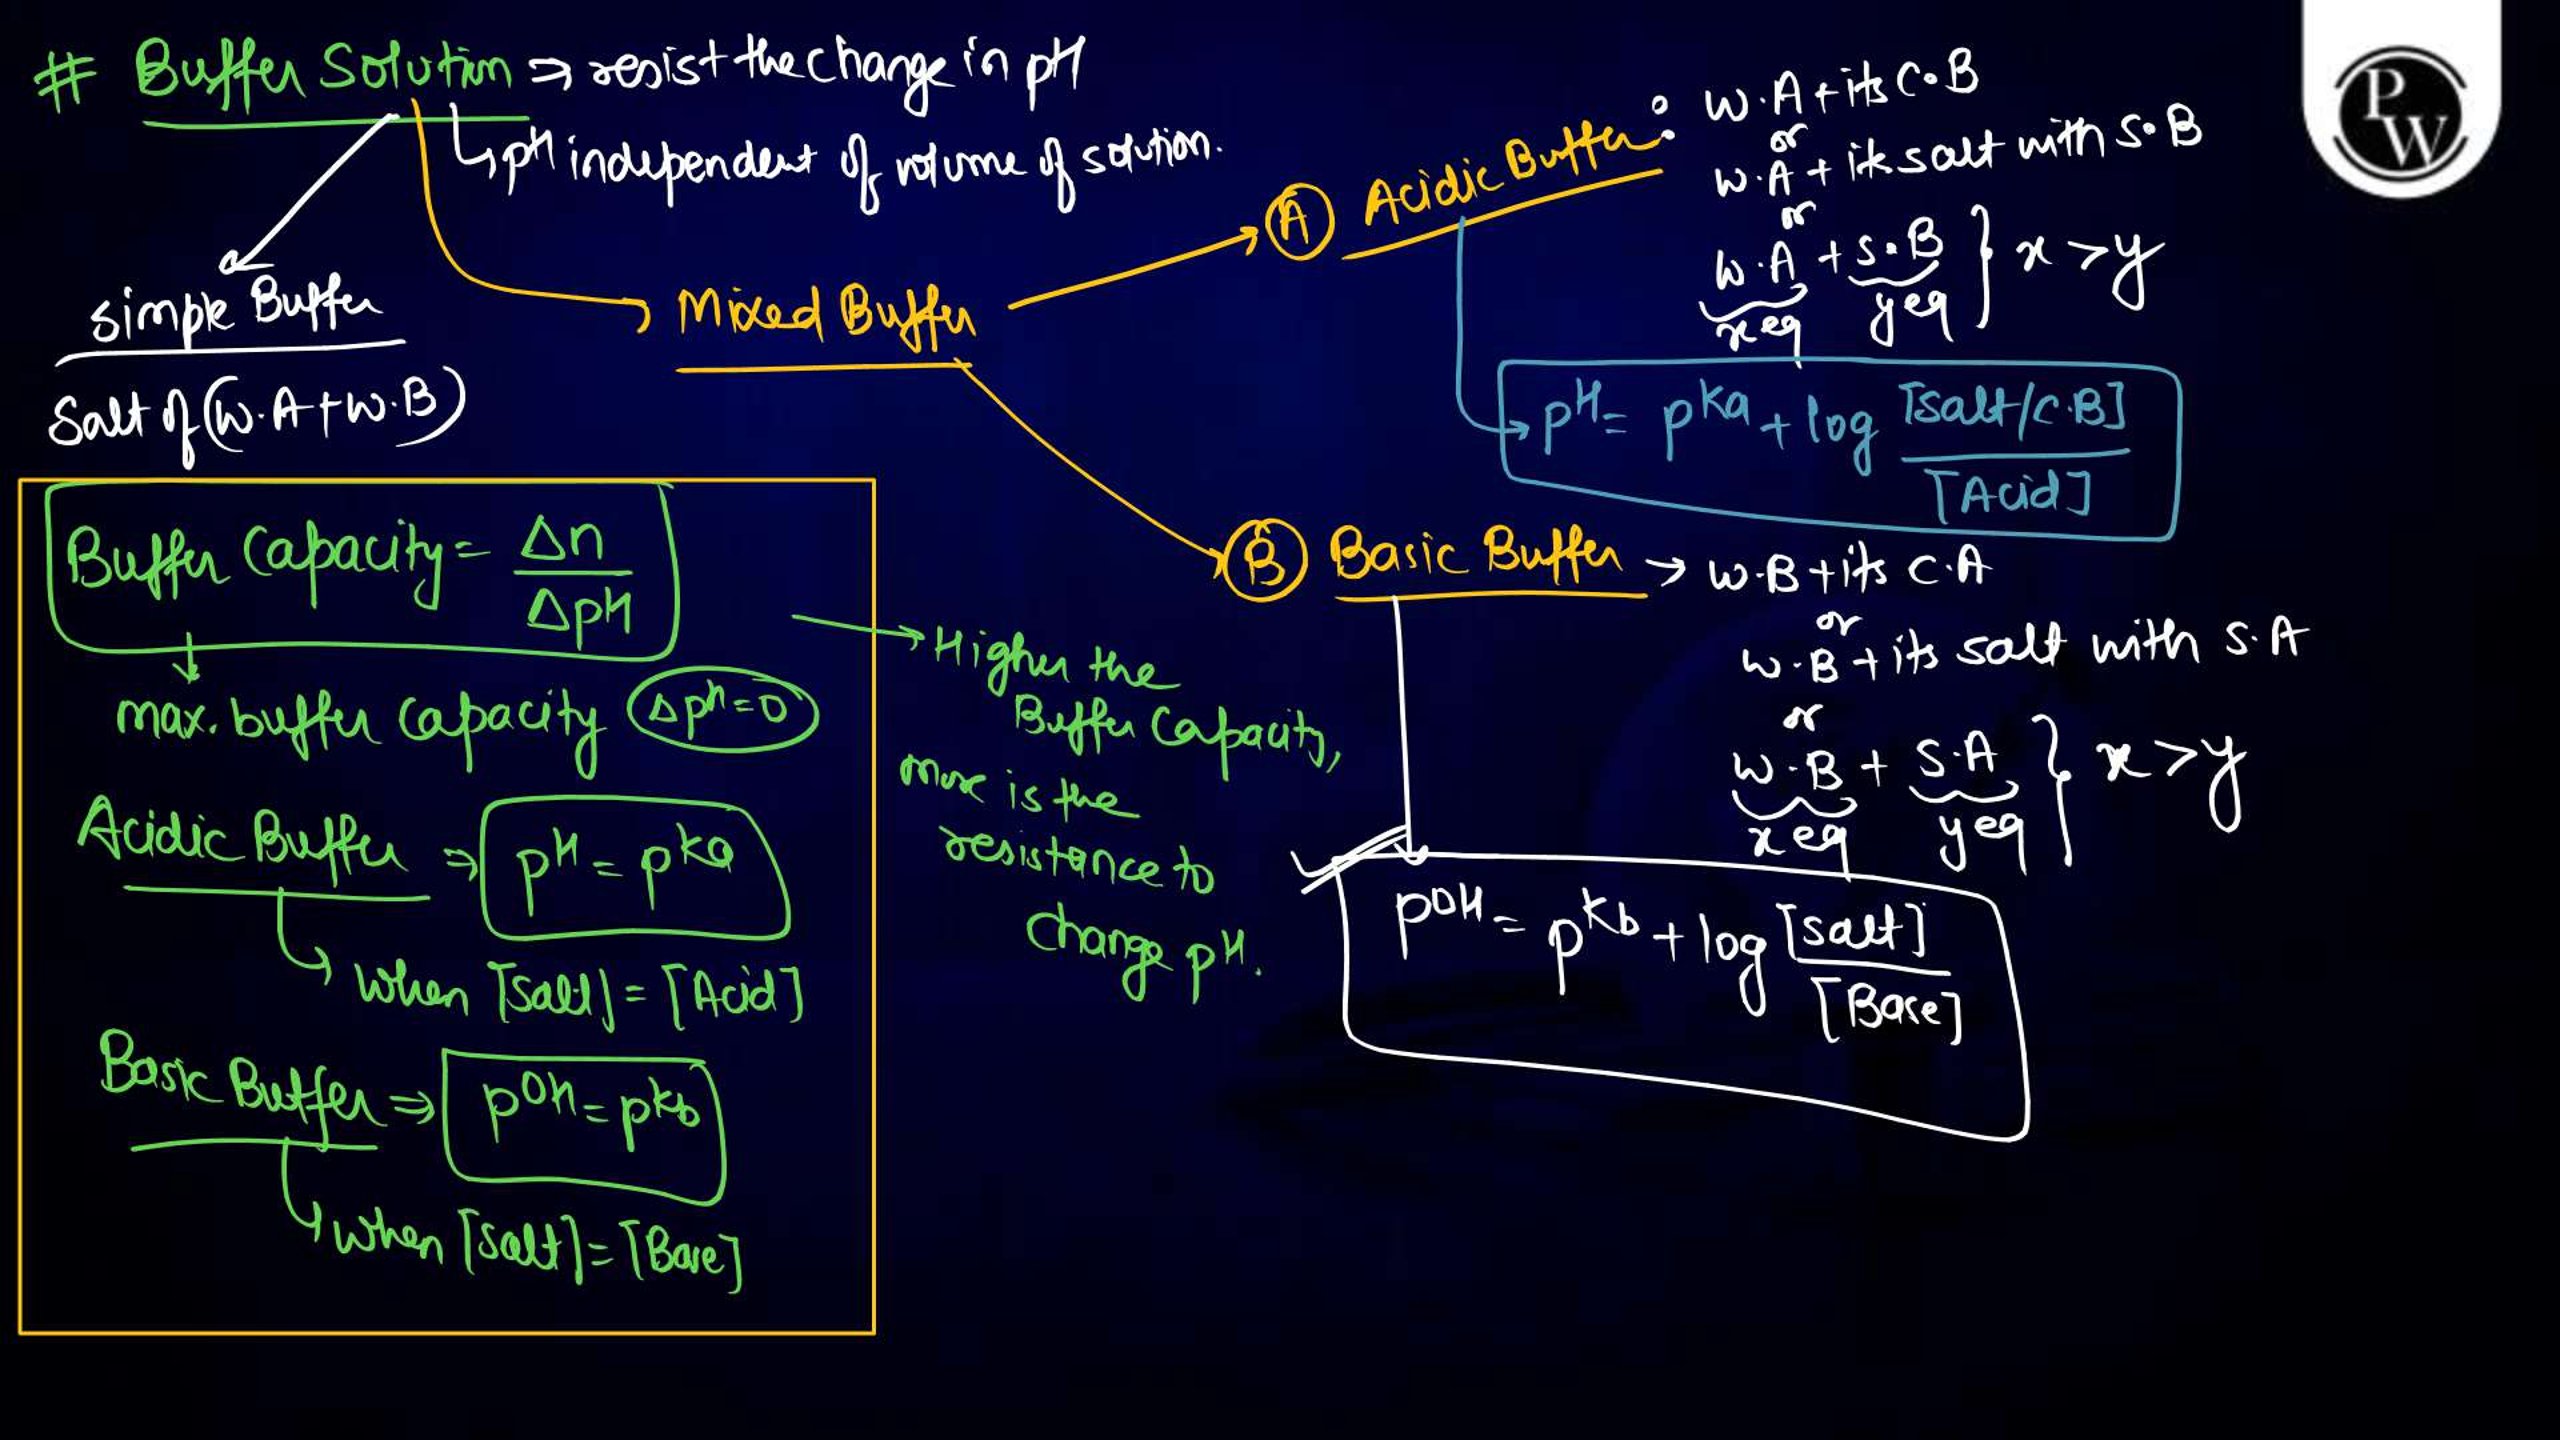 # Buffer Solution ⇒ resist the change in pH
↳ pH independent of volume of solution.
simple Buffer
Salt of (W.A + W.B)
Mixed Buffer
(A) Acidic Buffer :
W.A + its C.B
or
W.A + its salt with S.B
or
W.A + S.B } x > y
x eq y eq
pH = pKa + log [salt/C.B]
[Acid]
(B) Basic Buffer → W.B + its C.A
or
W.B + its salt with S.A
or
W.B + S.A } x > y
x eq y eq
pOH = pKb + log [salt]
[Base]
Buffer Capacity = Δn
ΔpH
max. buffer capacity ΔpH = 0
Acidic Buffer ⇒ pH = pKa
↳ When [Salt] = [Acid]
Basic Buffer ⇒ pOH = pKb
↳ When [Salt] = [Base]
→ Higher the
Buffer Capacity,
more is the
resistance to
change pH.
PW